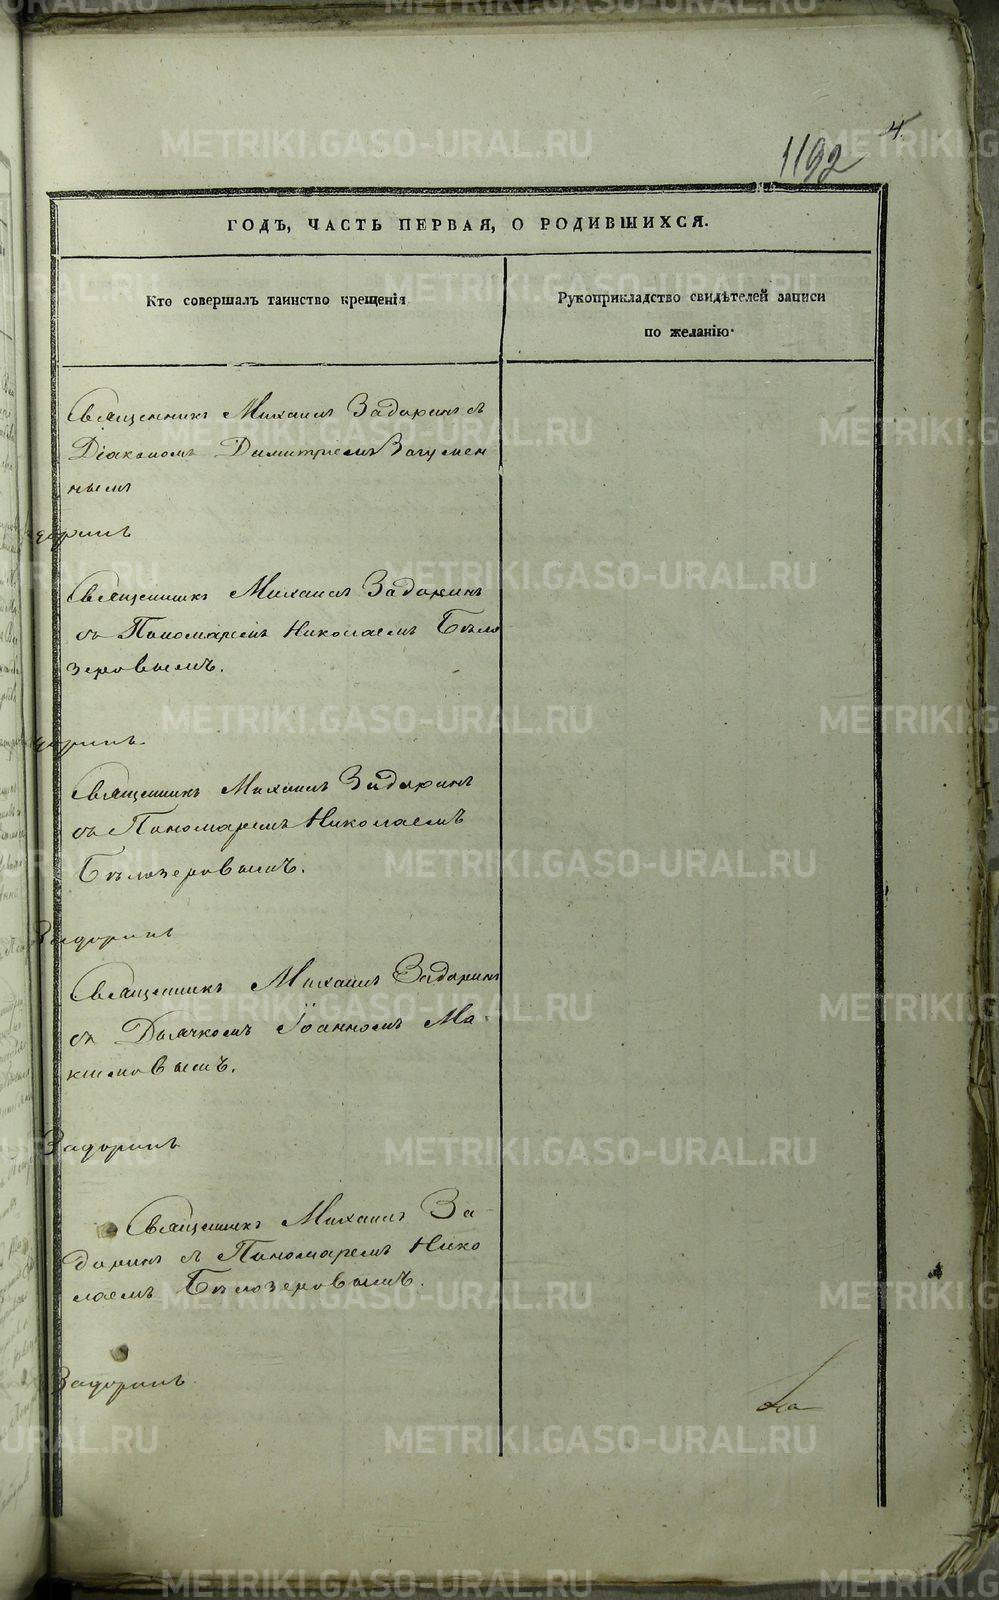 4
1192
ГОДЪ, ЧАСТЬ ПЕРВАЯ, О РОДИВШИХСЯ.
Кто совершалъ таинство крещенія
Рукоприкладство свидѣтелей записи
по желанію.
Священникъ Михаилъ Задоринъ съ
Діакономъ Димитріемъ Загумен
нымъ
Задоринъ
Священникъ Михаилъ Задоринъ
съ Пономаремъ Николаемъ Бѣло
зеровымъ.
Задоринъ
Священникъ Михаилъ Задоринъ
съ Пономаремъ Николаемъ
Бѣлозеровымъ.
Задоринъ
Священникъ Михаилъ Задоринъ
съ Дьячкомъ Іоанномъ Ма-
ксимовымъ.
Задоринъ
Священникъ Михаилъ За-
доринъ съ Пономаремъ Нико
лаемъ Бѣлозеровымъ.
Задоринъ
METRIKI.GASO-URAL.RU